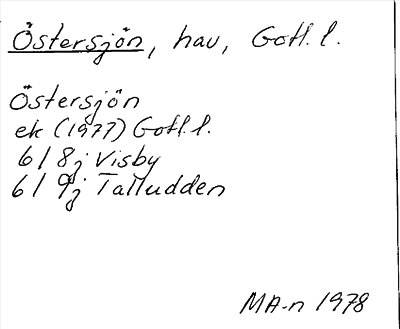 Östersjön, hav, Gotl. l.
Östersjön
ek (1977) Gotl. l.
6I 8j Visby
6I 9j Talludden
MA-n 1978